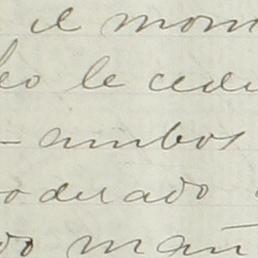 el mom
leo le cedi
- ambos
oderado
do mañ